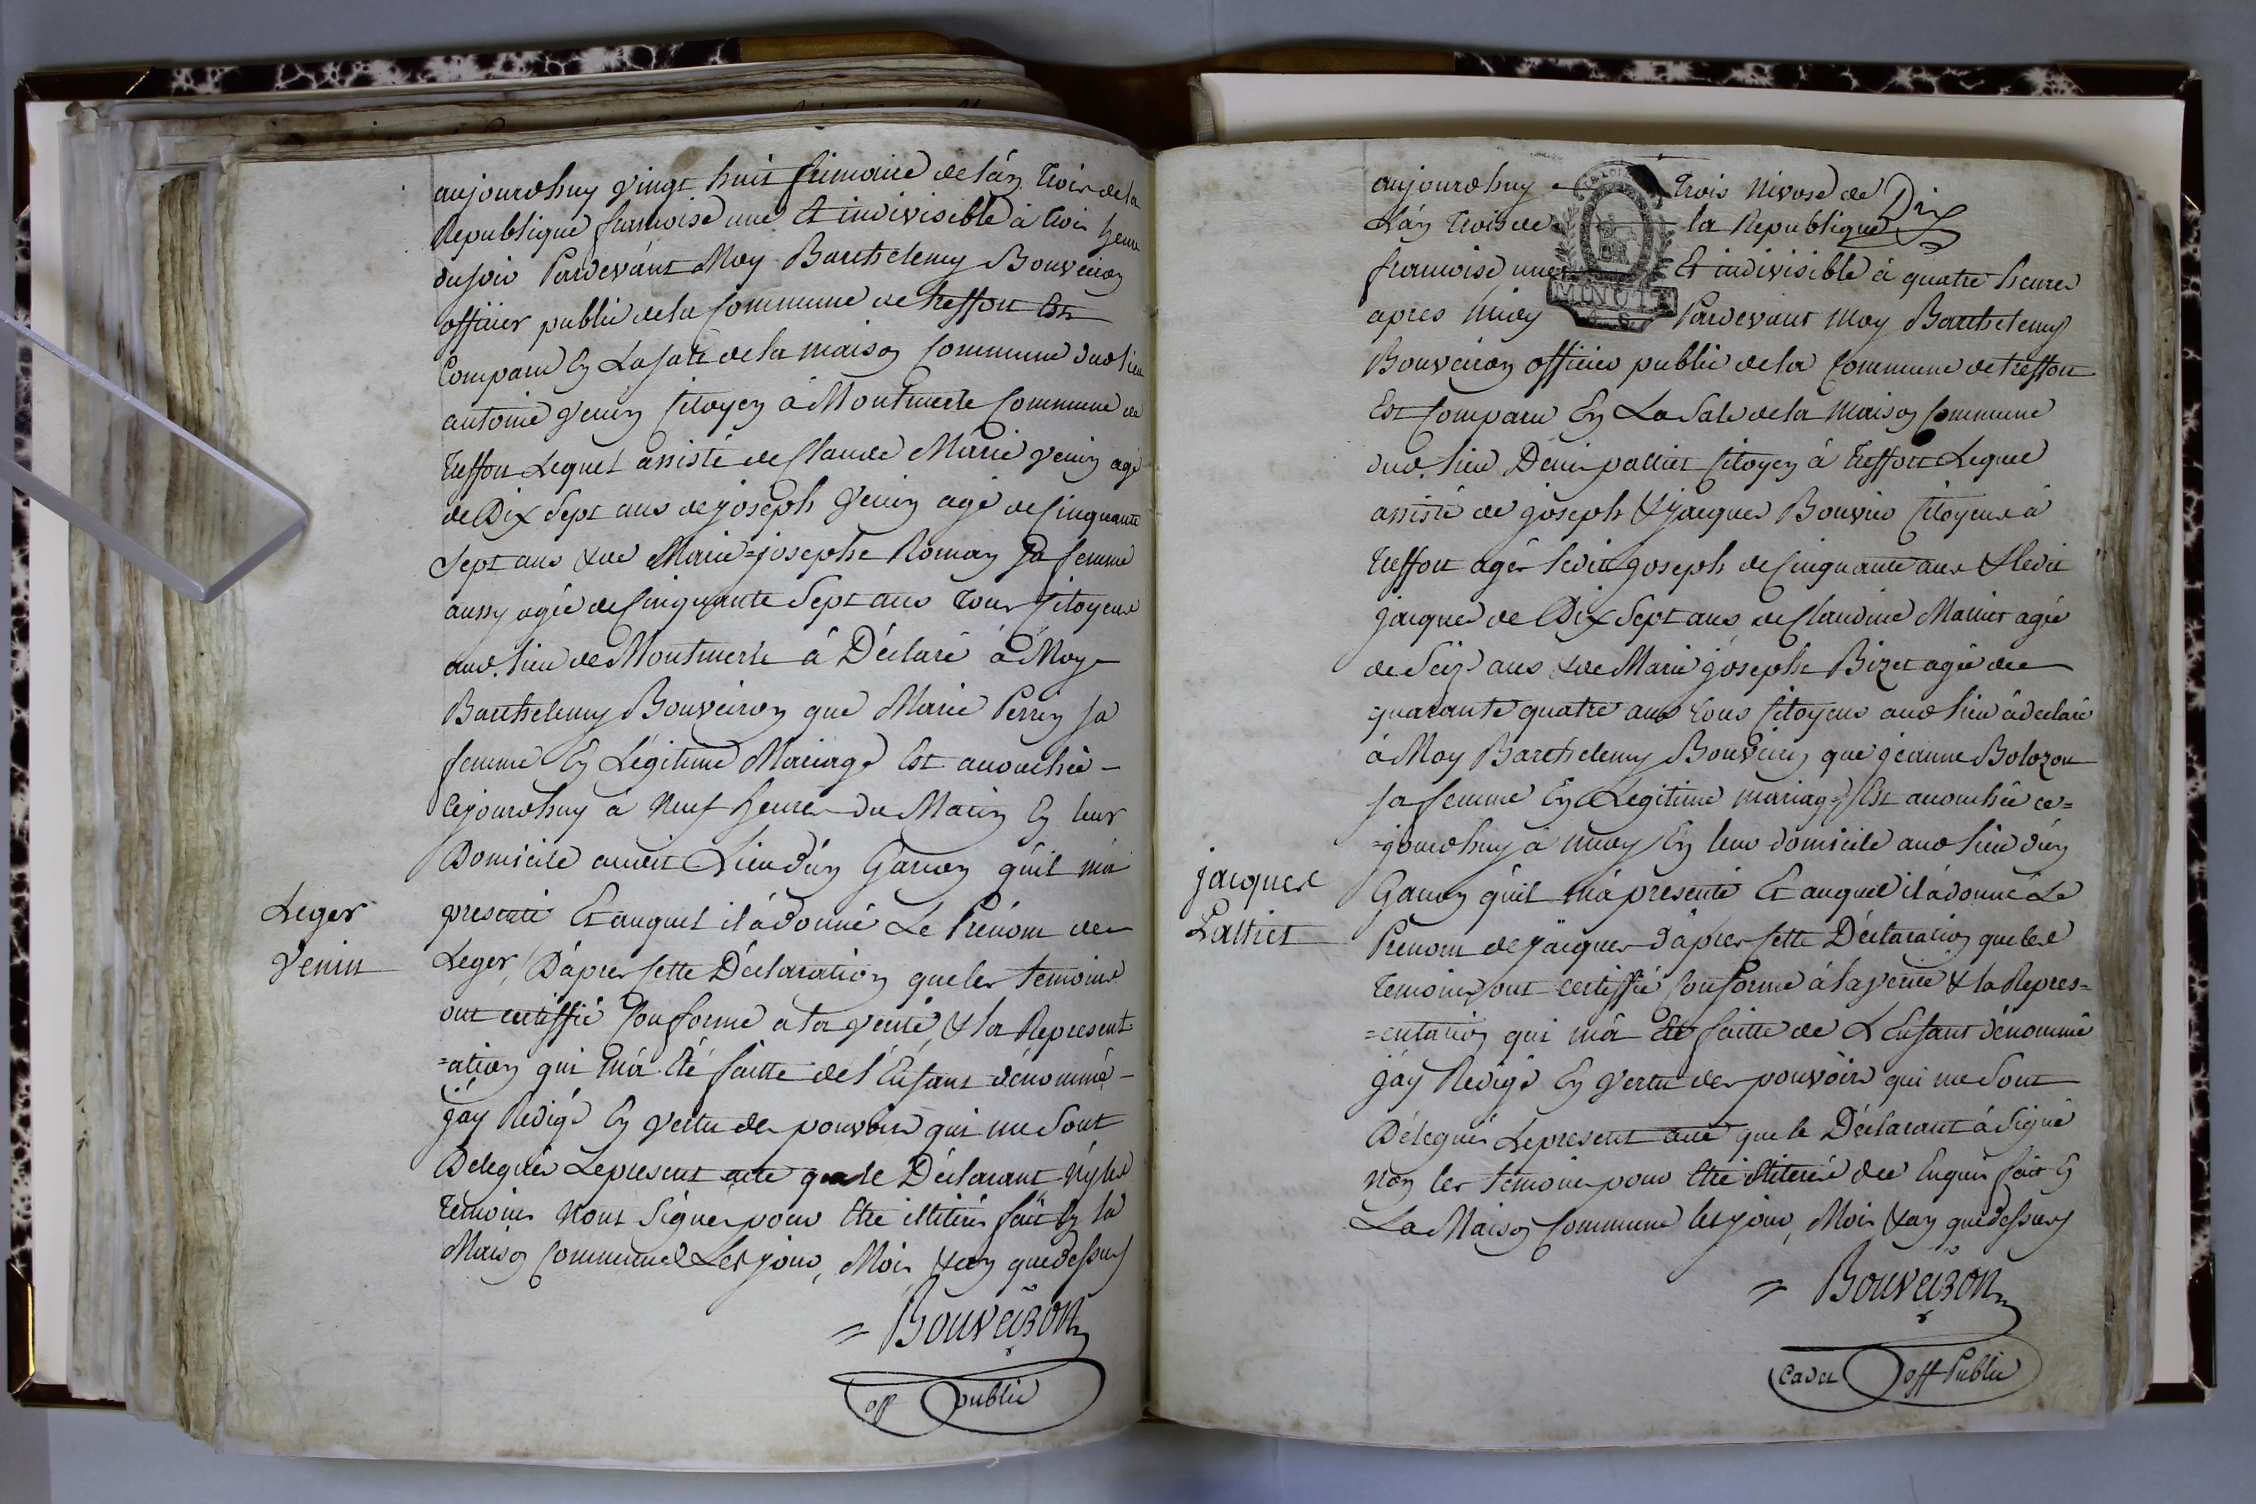 aujourdhuy vingt huit frimaire de lán trois de la
Republique francoise une Et indivisible à trois heure
du soir Pardevánt Moy Barthelemy Bouveiron
officier public de la Commune de treffort Est
Comparu En La sale de la maison Commune dud. lieu
antoine Venin Citoyen à Montmerle Commune de
treffort Lequel assisté de Claude Marie Venin agé
de Dix Sept ans de joseph Venin agé de Cinquante
Sept ans & de Marie=josephe Roman sa femme
aussy agée de Cinquante Sept ans tous Citoyens
aud. lieu de Montmerle à Déclaré à Moy
Barthelemy Bouveiron que Marie Perrin sa
femme En Légitime Mariage Est accouchée
Cejourdhuy à Neuf heures du Matin En leur
Domicile audit Lieu d'ún Garcon qúil má
presenté Et auquel il à donné Le Prénom de
Leger, D'ápres Cette Déclaration que les temoins
ont certiffié Conforme à la verité, & la Represent=
=ation qui má Eté faitte de l'Enfant dénommé
j'áy Redigé En vertu des pouvoirs qui me Sont
Delegués Lepresent acte que le Déclarant Ny les
temoins Nont Signé pour Etre illitéré fait En la
Maison Commune Les jour, Mois & an que dessus
= Bouveiron
off public
Leger
Venin
aujourdhuy trois Nivose de Dix
L'án trois de la Republique
francoise une Et indivisible à quatre heures
apres Midy Pardevant Moy Barthelemy
MINUTE
Bouveiron officier public de la Commune de treffort
Est Comparu En La Sale de la Maison Commune
dud. lieu Denis pallier Citoyen à treffort Lequel
assisté de joseph & jacques Bouvier Citoyens à
treffort agés ledit joseph de Cinquante ans & ledit
jacques de Dix Sept ans de Claudine agée
de Seize ans & de Marie josephe Bizet agée de
quarante quatre ans tous Citoyens aud lieu à declaré
à Moy Barthelemy Bouveiron que jeanne Bolozon
sa femme En Legitime mariage Est accouchée ce=
=jourdhuy à midy En leur domicile aud lieu d'ún
Garcon qúil má presenté Et auquel il à donné Le
Prenom de jacques D'ápres Cette Déclaration que les
temoins ont certiffié Conforme à la verité & la Repres=
=entation qui má Eté faitte de L'Enfant dénommé
j'áy Redigé En vertu des pouvoirs qui me Sont
Délegués Lepresent acte que le Déclarant à Signé
Non les temoins pour Etre illiteré de Enquis fait En
La Maison Commune les jour, Mois & an que dessus
= Bouveiron
Cadet off Public
jacques
Pallier